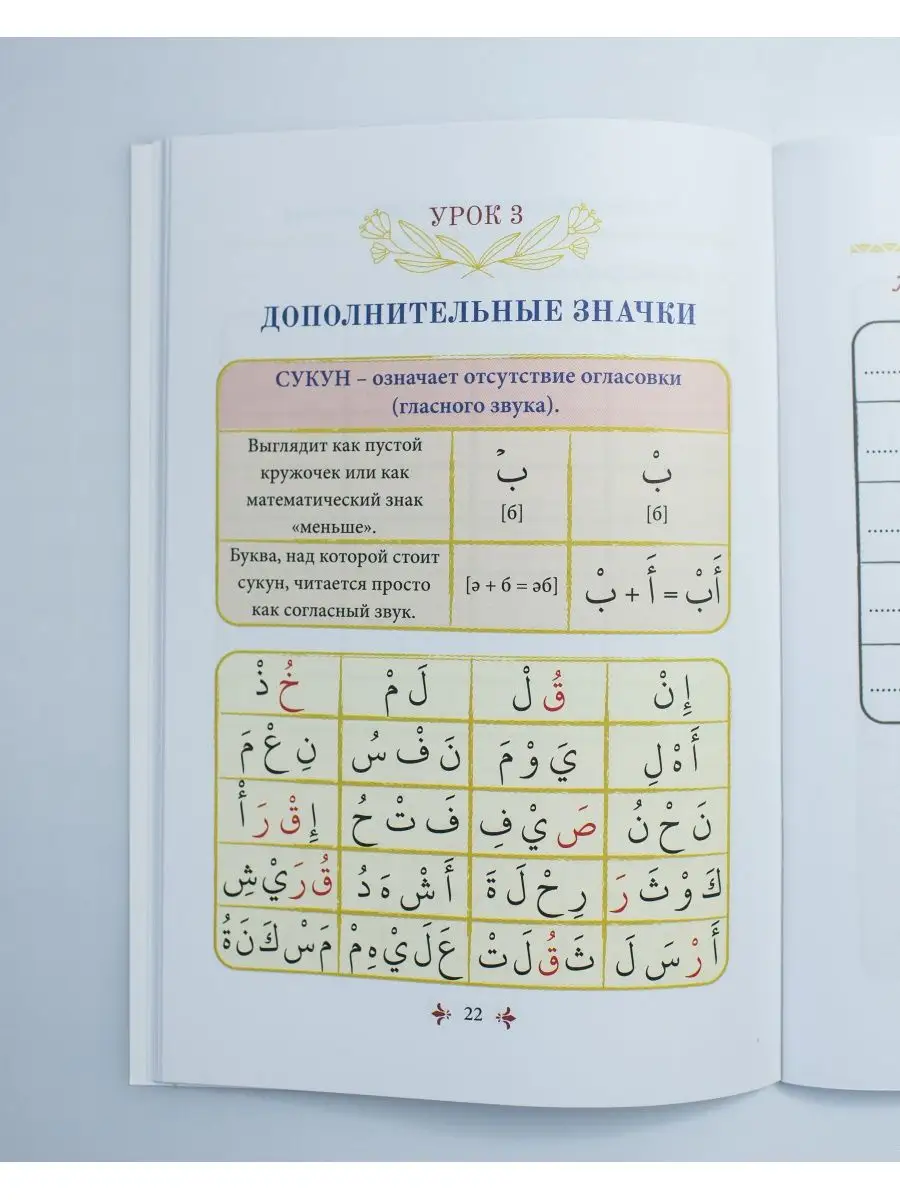 УРОК 3
ДОПОЛНИТЕЛЬНЫЕ ЗНАЧКИ
СУКУН – означает отсутствие огласовки
(гласного звука).
Выглядит как пустой
кружочек или как
математический знак
«меньше».
بۡ
[б]
بْ
[б]
Буква, над которой стоит
сукун, читается просто
как согласный звук.
[ə + б = əб]
أَبْ = أَ + بْ
إِ نْ
قُ لْ
لَ مْ
خُ ذْ
أَ هْ لِ
يَ وْ مَ
نَ فْ سُ
نِ عْ مَ
نَ حْ نُ
صَ يْ فِ
فَ تْ حُ
إِ قْ رَ أْ
كَ وْ ثَ رَ
رِ حْ لَ ةَ
أَ شْ هَ دُ
قُ رَ يْ شِ
أَ رْ سَ لَ
ثَ قُ لَ تْ
عَ لَ يْ هِ مْ
مَ سْ كَ نَ ةُ
22